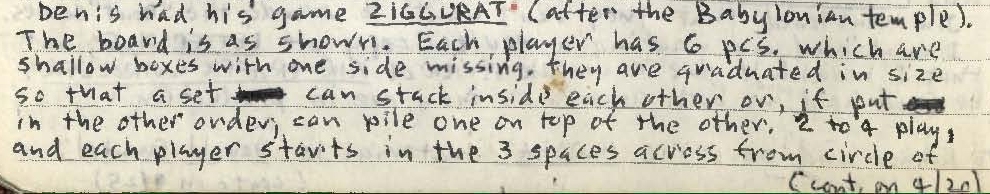 Denis had his game ZIGGURAT (after the Babylonian temple).
The board is as shown. Each player has 6 pcs. which are
shallow boxes with one side missing. They are graduated in size
so that a set can stack inside each other or, if put
in the other order, can pile one on top of the other. 2 to 4 play,
and each player starts in the 3 spaces across from circle of
(cont. on 4/20)